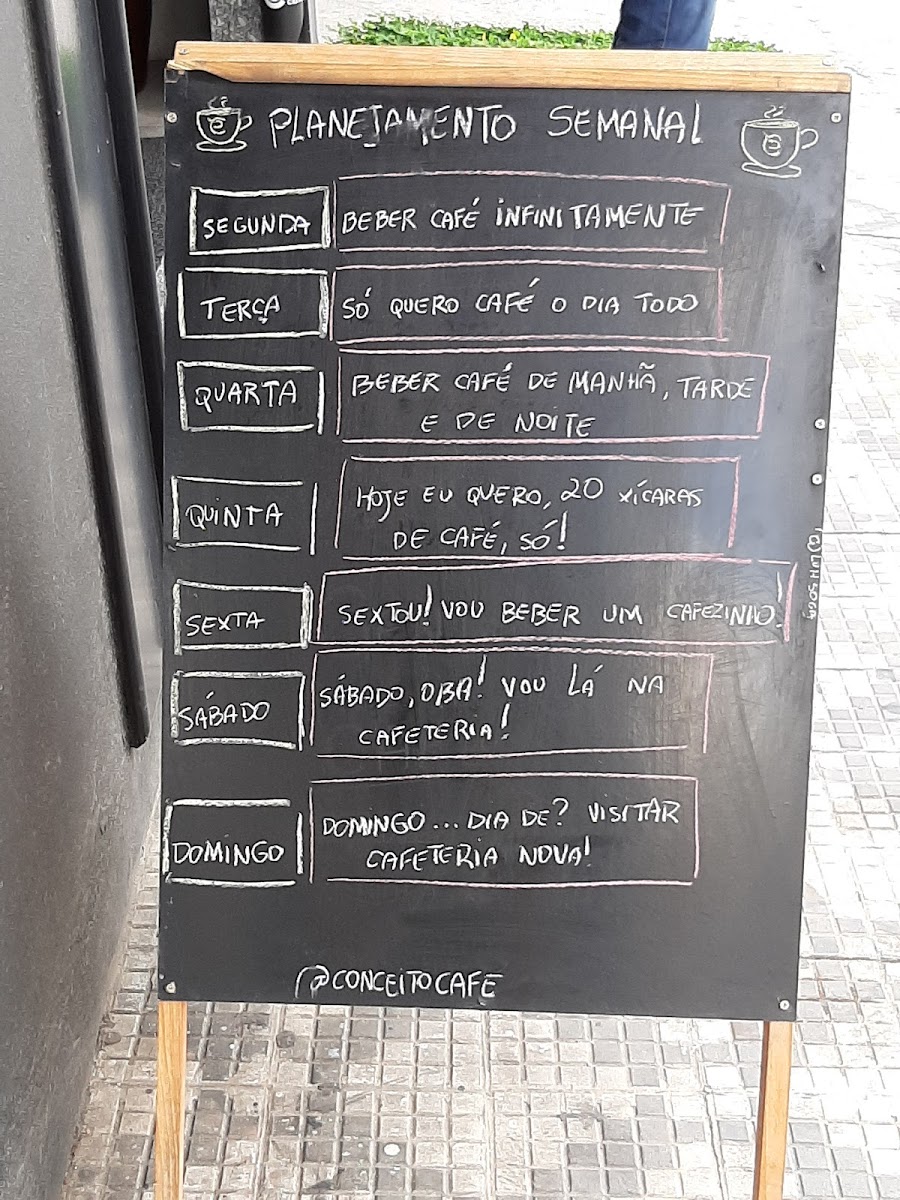 PLANEJAMENTO SEMANAL
SEGUNDA
BEBER CAFÉ INFINITAMENTE
TERÇA
SÓ QUERO CAFÉ O DIA TODO
QUARTA
BEBER CAFÉ DE MANHÃ, TARDE
E DE NOITE
QUINTA
HOJE EU QUERO, 20 XÍCARAS
DE CAFÉ, SÓ!
SEXTA
SEXTOU! VOU BEBER UM CAFEZINHO!
SÁBADO
SÁBADO, OBA! VOU LÁ NA
CAFETERIA!
DOMINGO
DOMINGO... DIA DE? VISITAR
CAFETERIA NOVA!
@CONCEITOCAFE